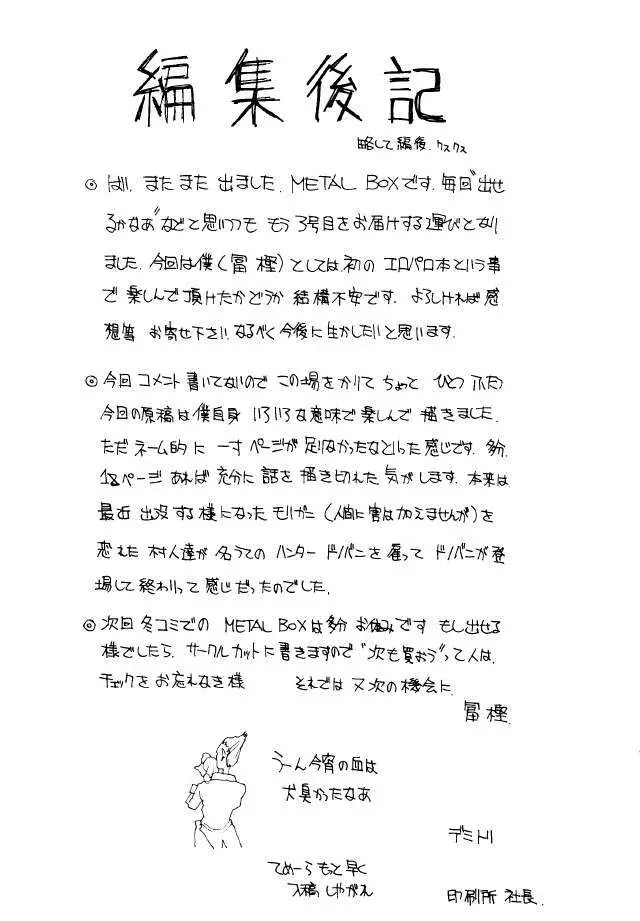 編集後記
略して編後.クスクス
◎ はい、またまた 出ました、METAL BOXです。毎回"出せ
るかなあ"などと思いつつも もう 3号目をお届けする運びとなり
ました。今回は僕(冨樫)としては、初の エロパロ本という事
で 楽しんで頂けたかどうか 結構不安です。よろしければ感
想等 お寄せ下さい。なるべく今後に生かしたいと思います。
◎ 今回 コメント書いてないので この場をかりて ちょっと ひとつ ふたつ
今回の原稿は僕自身 いろいろな意味で楽しんで 描きました。
ただ ネーム的に 一寸 ページが 足りなかったなといった感じです。多分、
12ページ あれば 充分に 話を 描き切れた 気がします。本来は
最近 出没する様になった モリガン(人間に害は加えませんが)を
恐れた 村人達が 名うての ハンター ドノバンを 雇って ドノバンが登
場して終わりって 感じだったのでした。
◎ 次回 冬コミでの METAL BOXは多分 お休みです もし出せる
様でしたら、サークルカットに書きますので"次も買おう"って人は、
チェックをお忘れなき様 それでは 又次の機会に
冨樫.
うーん今宵の血は
犬臭かったなあ
デミトリ
てめーら もっと早く
入稿しやがれ
印刷所 社長.